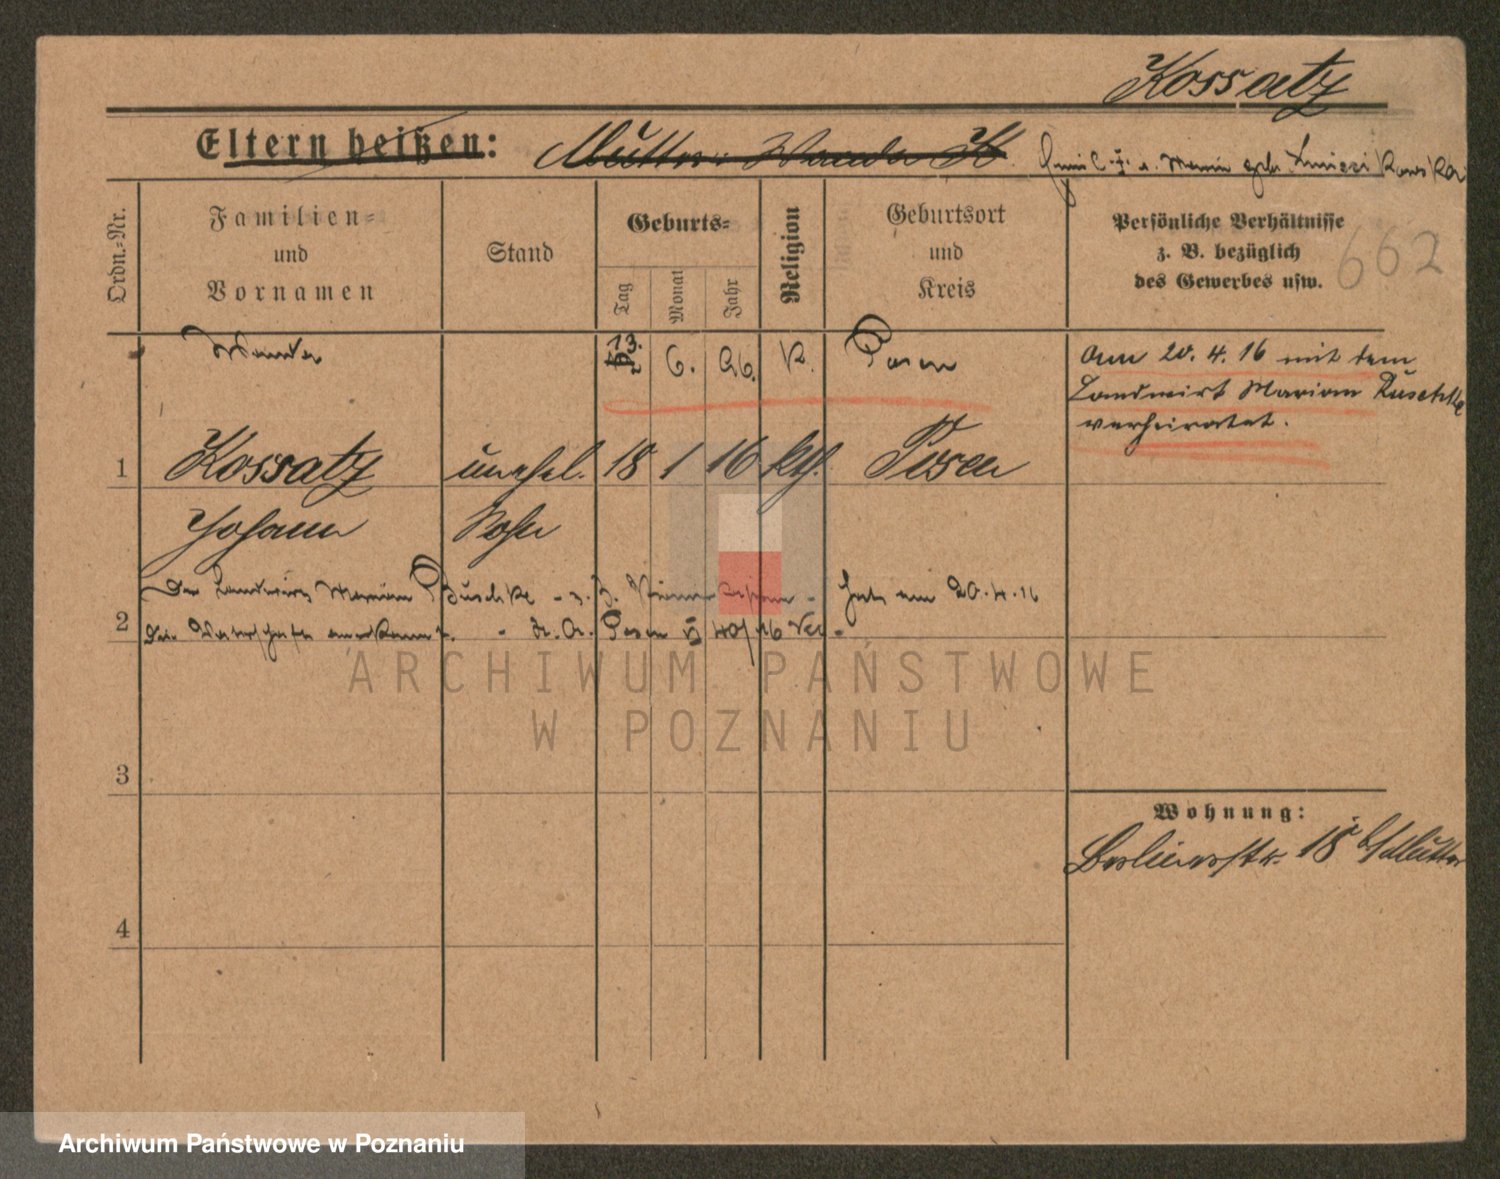 Kossatz
Eltern heißen: Mutter: Wanda K. Emil u. geb.
Ordn.-Nr.
Familien- und Vornamen
Stand
Geburts-
Tag
Monat
Jahr
Religion
Geburtsort und Kreis
Persönliche Verhältnisse
z. B. bezüglich
des Gewerbes usw.
662
Wanda 13. 6. 96. K. Posen
Am 20.4.16 mit dem
Landwirt Marian Ruschke
verheiratet.
1 Kossatz unehel. 18 1 16 kth. Posen
Johann Sohn
Der Landwirt Marian Buschke - z. B. - hat am 20.4.16
2 die Vaterschaft anerkannt. - Posen
ARCHIWUM PAŃSTWOWE
W POZNANIU
3
Wohnung:
Berlinerstr. 18 b/Mutter
4
Archiwum Państwowe w Poznaniu